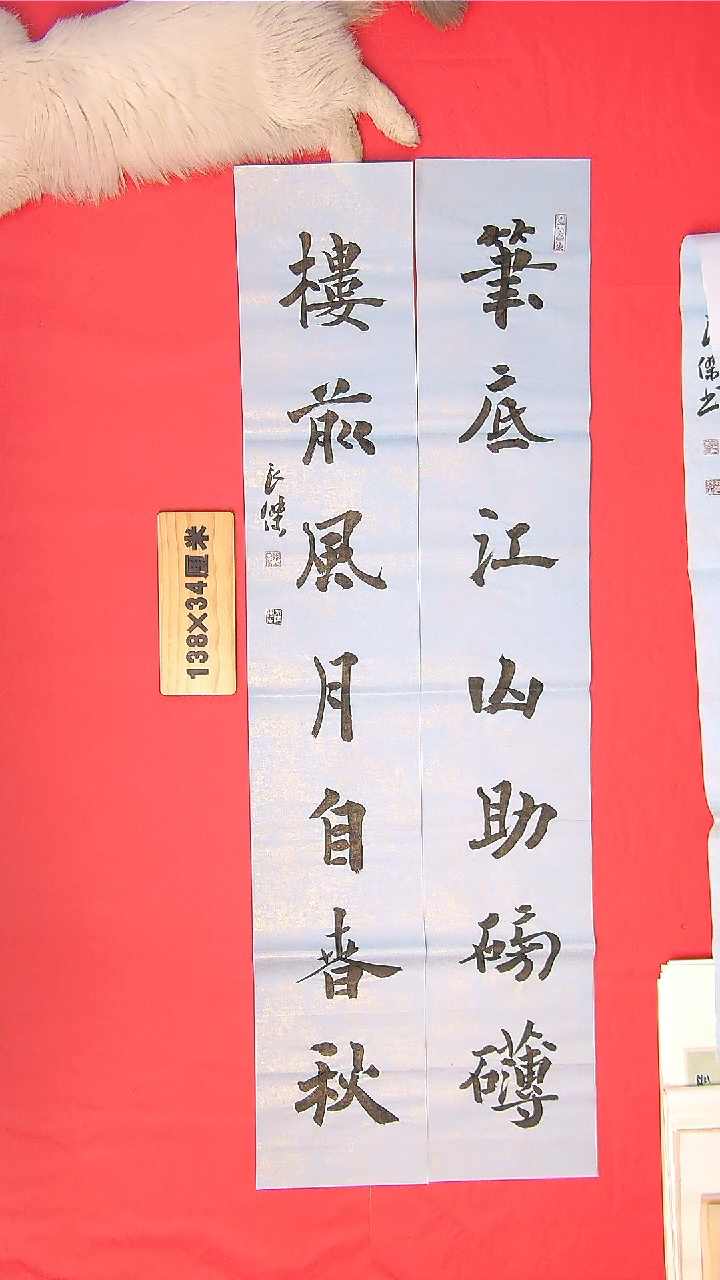 筆底江山助磅礴
樓前風月自春秋
138×34厘米